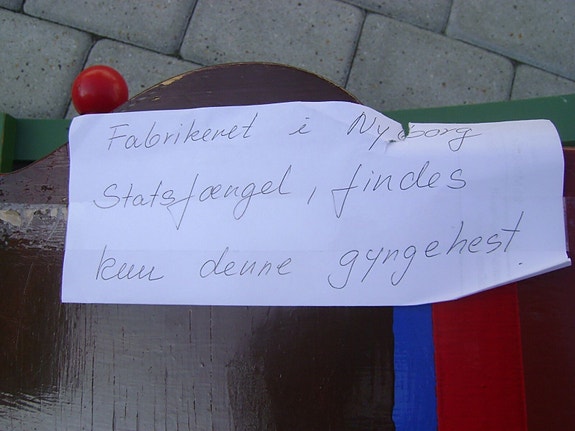 Fabrikeret i Nyborg
Statsfængel, findes
kun denne gyngehest.